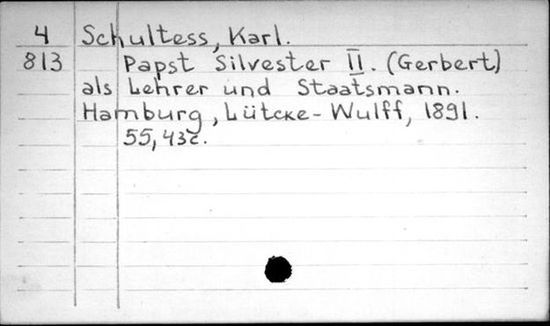 4 Schultess, Karl.
813 Papst Silvester II. (Gerbert)
als Lehrer und Staatsmann.
Hamburg, Lütcke-Wulff, 1891.
55, 43с.